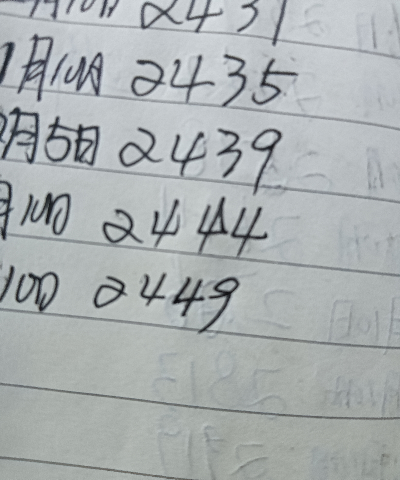 月10日 2431
1月10日 2435
2月5日 2439
月10日 2444
10日 2449